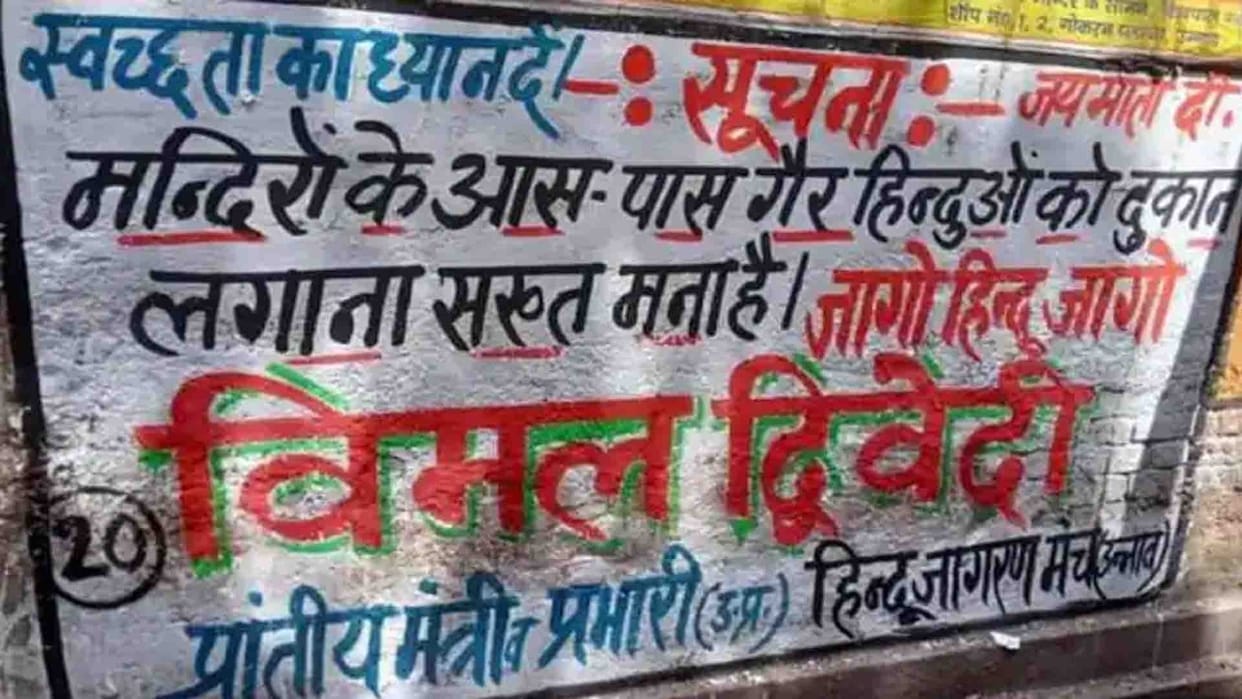 के सामने
शॉप नं0 1, 2, गोकरन
स्वच्छता का ध्यान दें। -: सूचना :- जय माता दी.
मन्दिरों के आस-पास गैर हिन्दुओं को दुकान
लगाना सख्त मना है। जागो हिन्दू जागो
विमल द्विवेदी
20
प्रांतीय मंत्री व प्रभारी (उ.प्र.) हिन्दू जागरण मंच (उन्नाव)